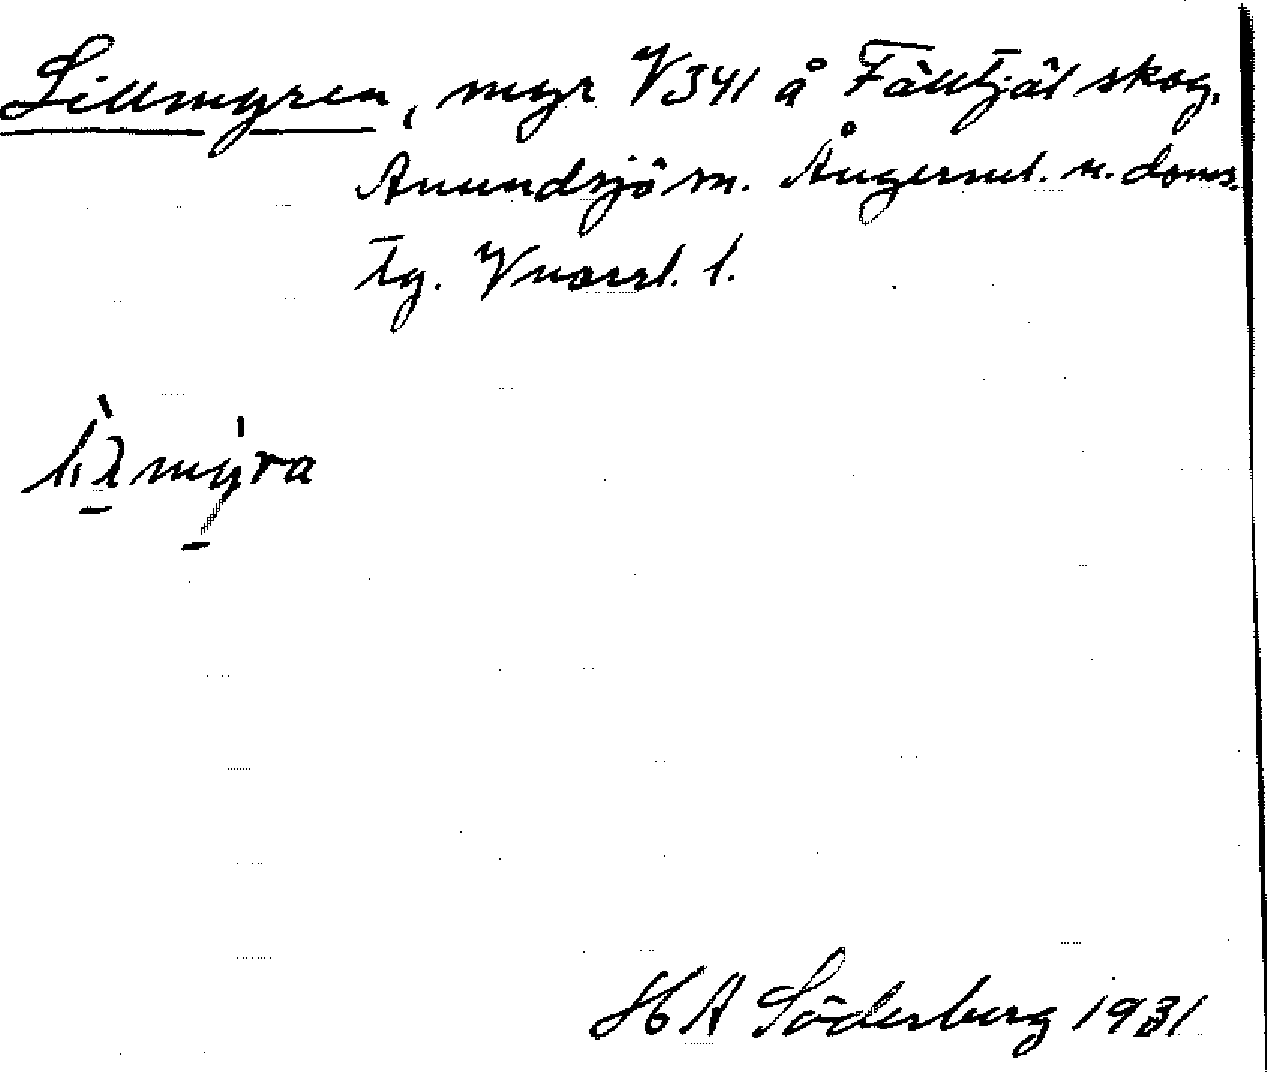 Lillmyren, myr V341 å Fälltjäl skog,
Anundsjö sn. Ångerml. n. doms.
tg. Vnorrl. l.
myra
H A Söderberg 1931